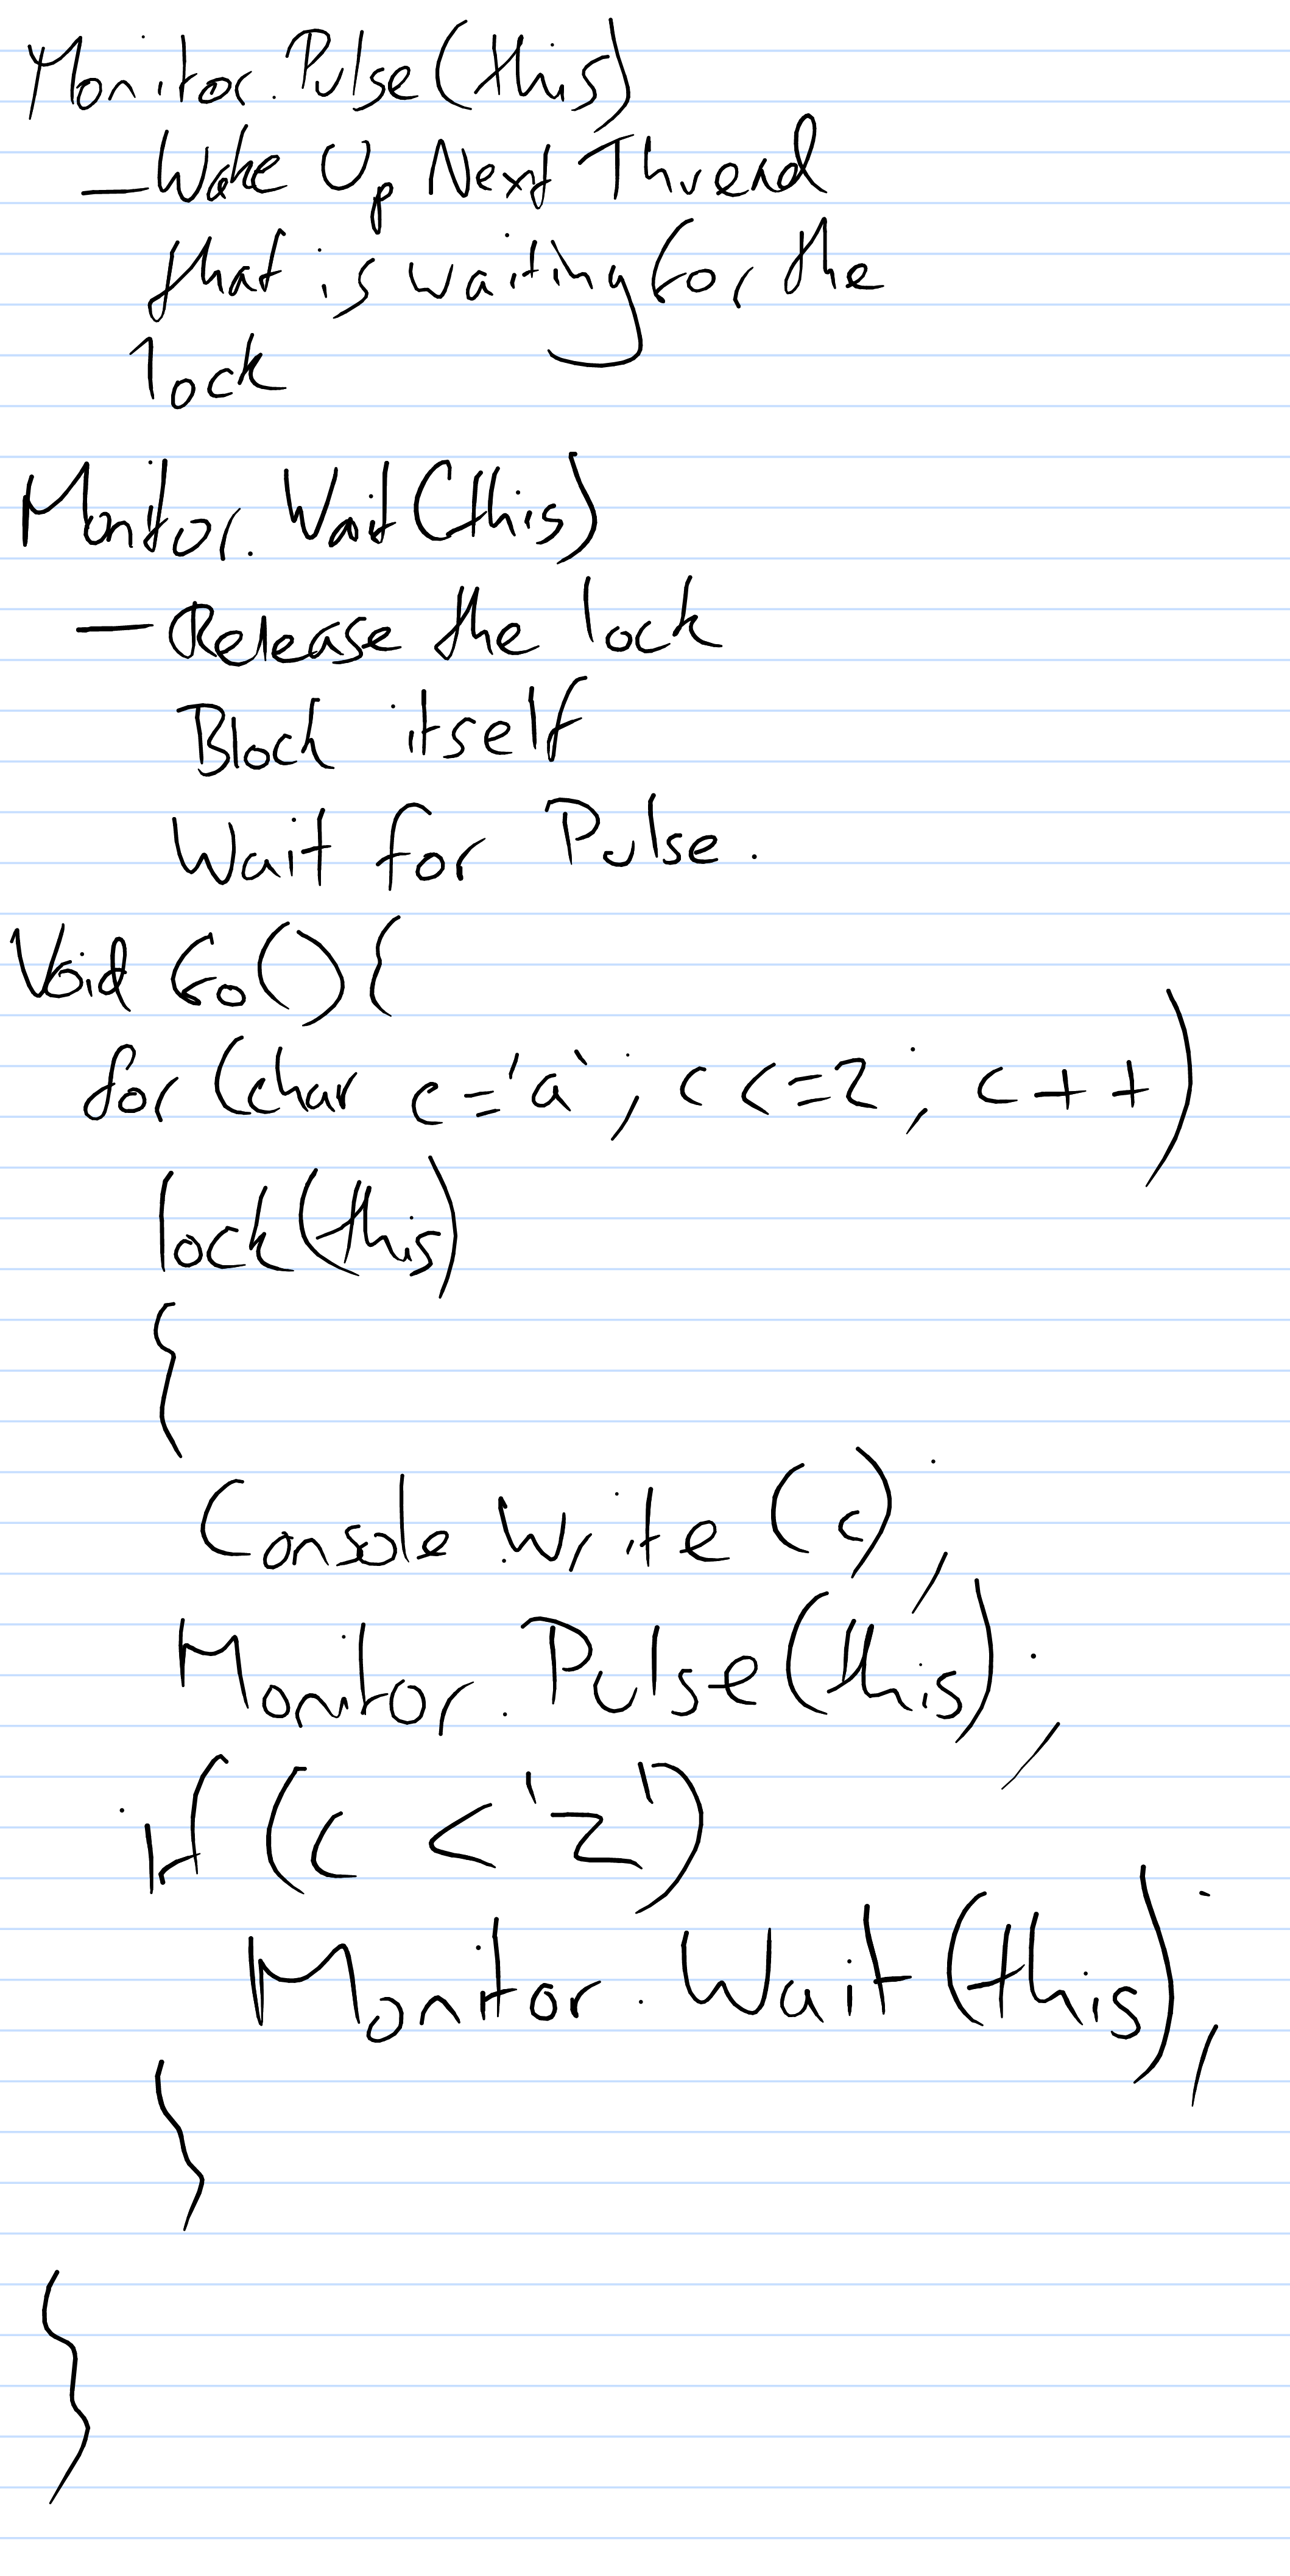 Monitor.Pulse(this)
—Wake Up Next Thread
that is waiting for the
lock
Monitor.Wait(this)
—Release the lock
Block itself
Wait for Pulse.
Void Go(){
for (char c='a'; c <=z; c++)
lock(this)
{
Console.Write(c);
Monitor.Pulse(this);
if (c <'z')
Monitor.Wait(this);
}
}